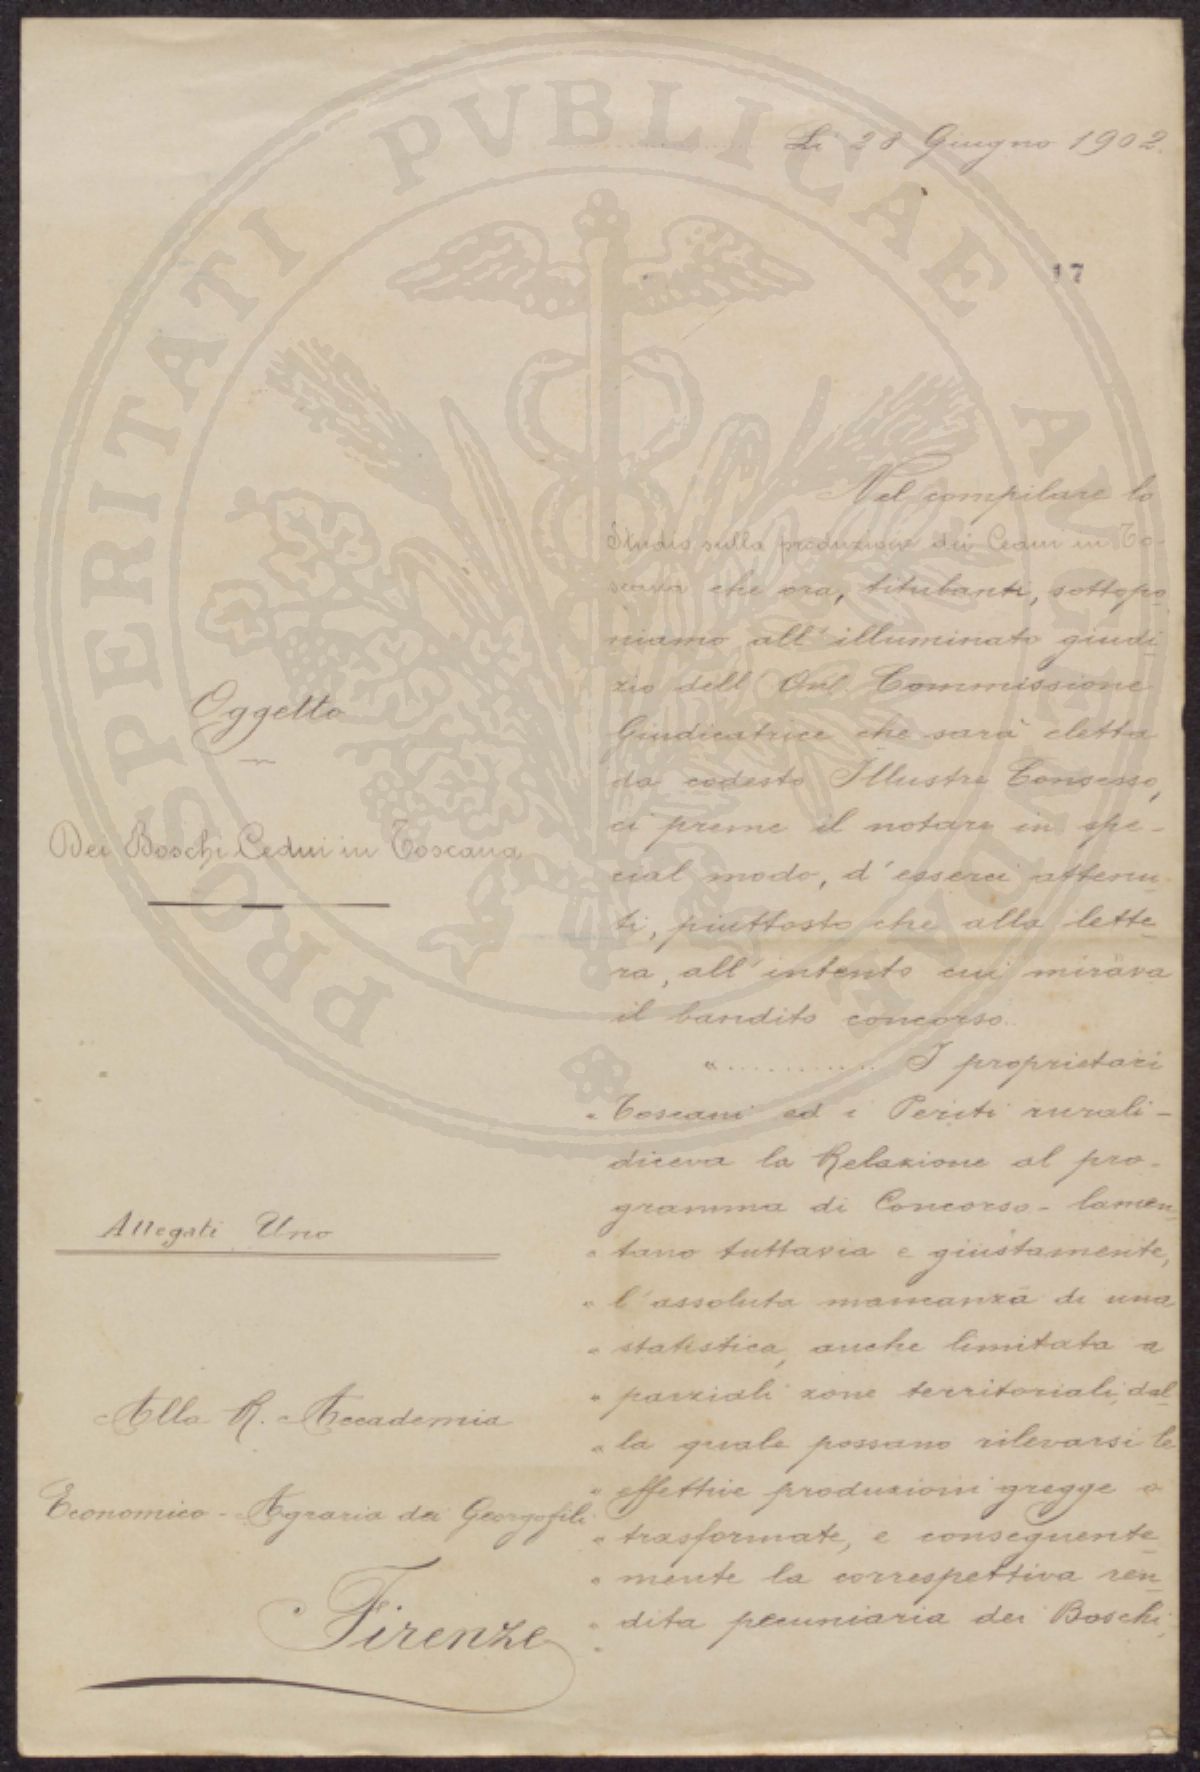 Li 28 Giugno 1902.
17
Oggetto
Dei Boschi Cedui in Toscana
Allegati Uno
Alla R. Accademia
Economico-Agraria dei Georgofili
Firenze
Nel compilare lo
Studio sulla produzione dei Cedui in To-
scana che ora, titubanti, sottopo-
niamo all'illuminato giudi-
zio dell' Onl. Commissione
Giudicatrice che sarà eletta
da codesto Illustre Consesso,
ci preme il notare in spe-
cial modo, d'esserci attenu-
ti, piuttosto che alla lette-
ra, all'intento cui mirava
il bandito concorso.
" ............ I proprietari
" Toscani ed i Periti rurali -
diceva la Relazione al pro-
gramma di Concorso - lamen-
" tano tuttavia e giustamente,
" l'assoluta mancanza di una
" statistica, anche limitata a
" parziali zone territoriali, dal-
" la quale possano rilevarsi le
" effettive produzioni gregge o
" trasformate, e conseguente-
" mente la correspettiva ren-
" dita pecuniaria dei Boschi,
"
PROSPERITATI PVBLICAE AVGENDAE